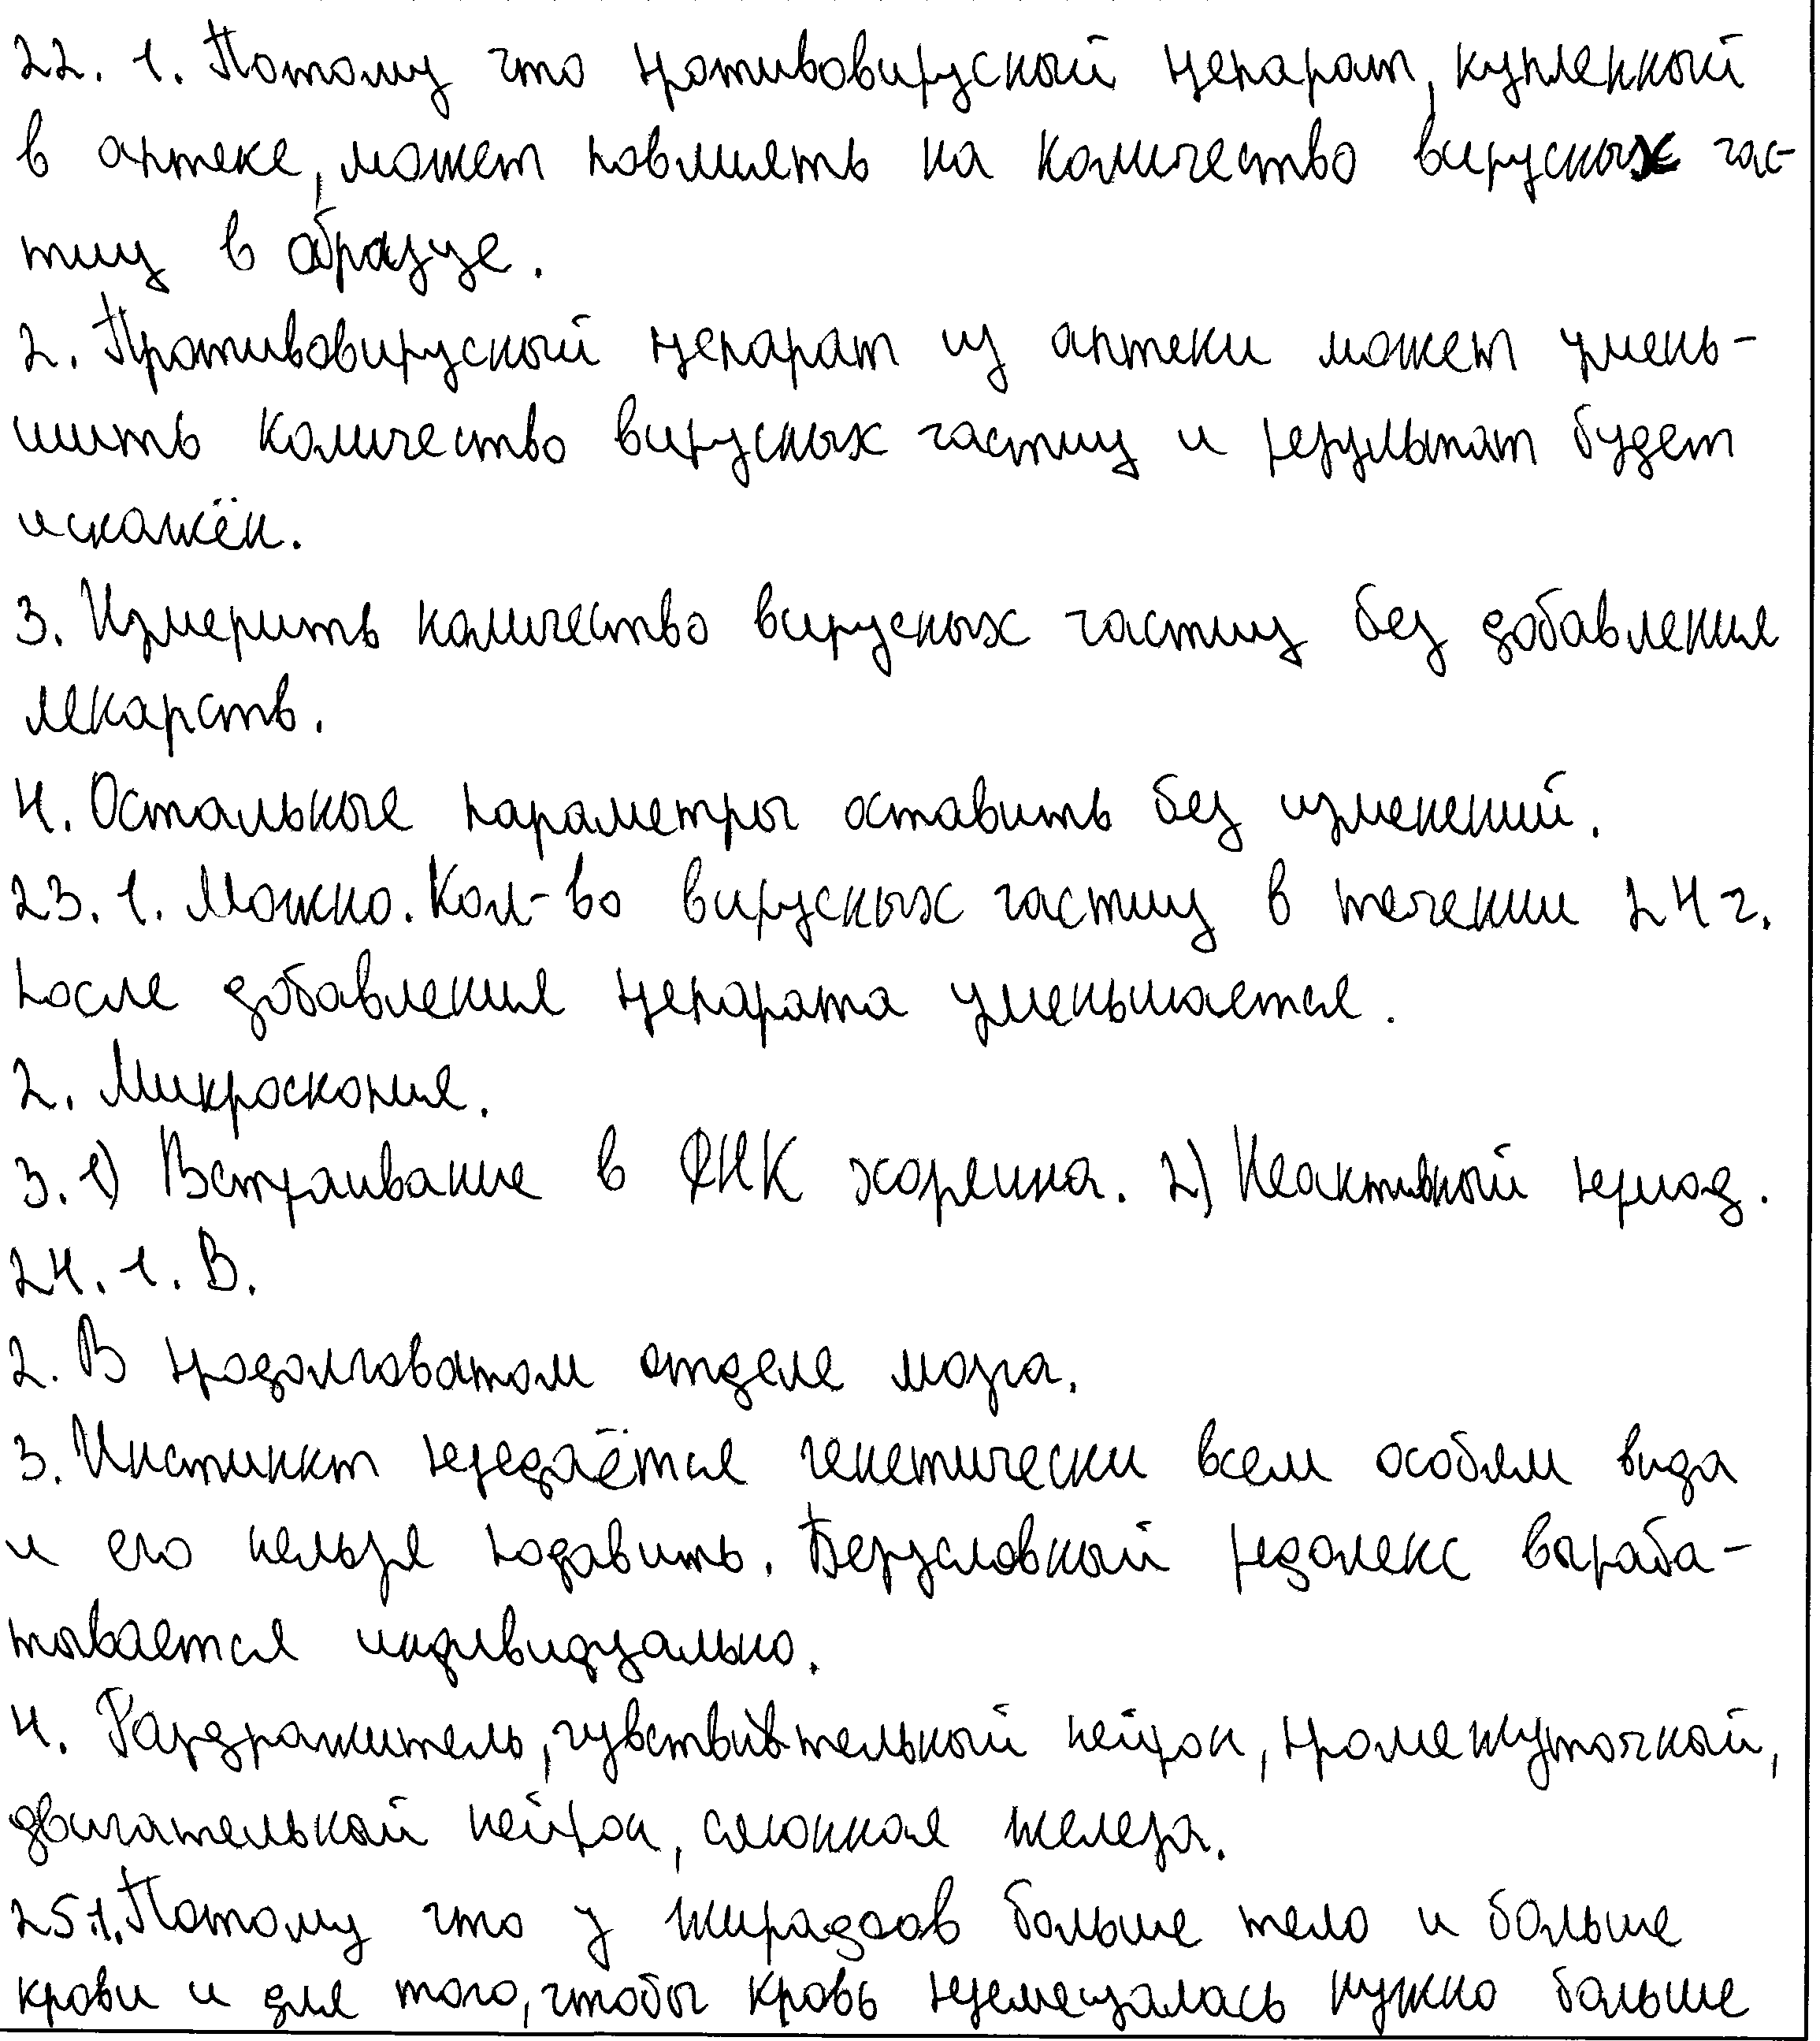 22. 1. Потому что противовирусный препарат, купленный
в аптеке, может повлиять на количество вирусных час-
тиц в образце.
2. Противовирусный препарат из аптеки может умень-
шить количество вирусных частиц и результат будет
искажён.
3. Измерить количество вирусных частиц без добавления
лекарств.
4. Остальные параметры оставить без изменений.
23. 1. Можно. Кол-во вирусных частиц в течении 24 ч.
после добавления препарата уменьшается.
2. Микроскопия.
3. 1) Встраивание в ДНК хозяина. 2) Неактивный период.
24. 1. В.
2. В продолговатом отделе мозга.
3. Инстинкт передаётся генетически всем особям вида
и его нельзя подавить. Безусловный рефлекс выраба-
тывается индивидуально.
4. Раздражитель, чувствительный нейрон, промежуточный,
двигательный нейрон, слюнная железа.
25.1. Потому что у жирафов больше тело и больше
крови и для того, чтобы кровь перемещалась нужно больше